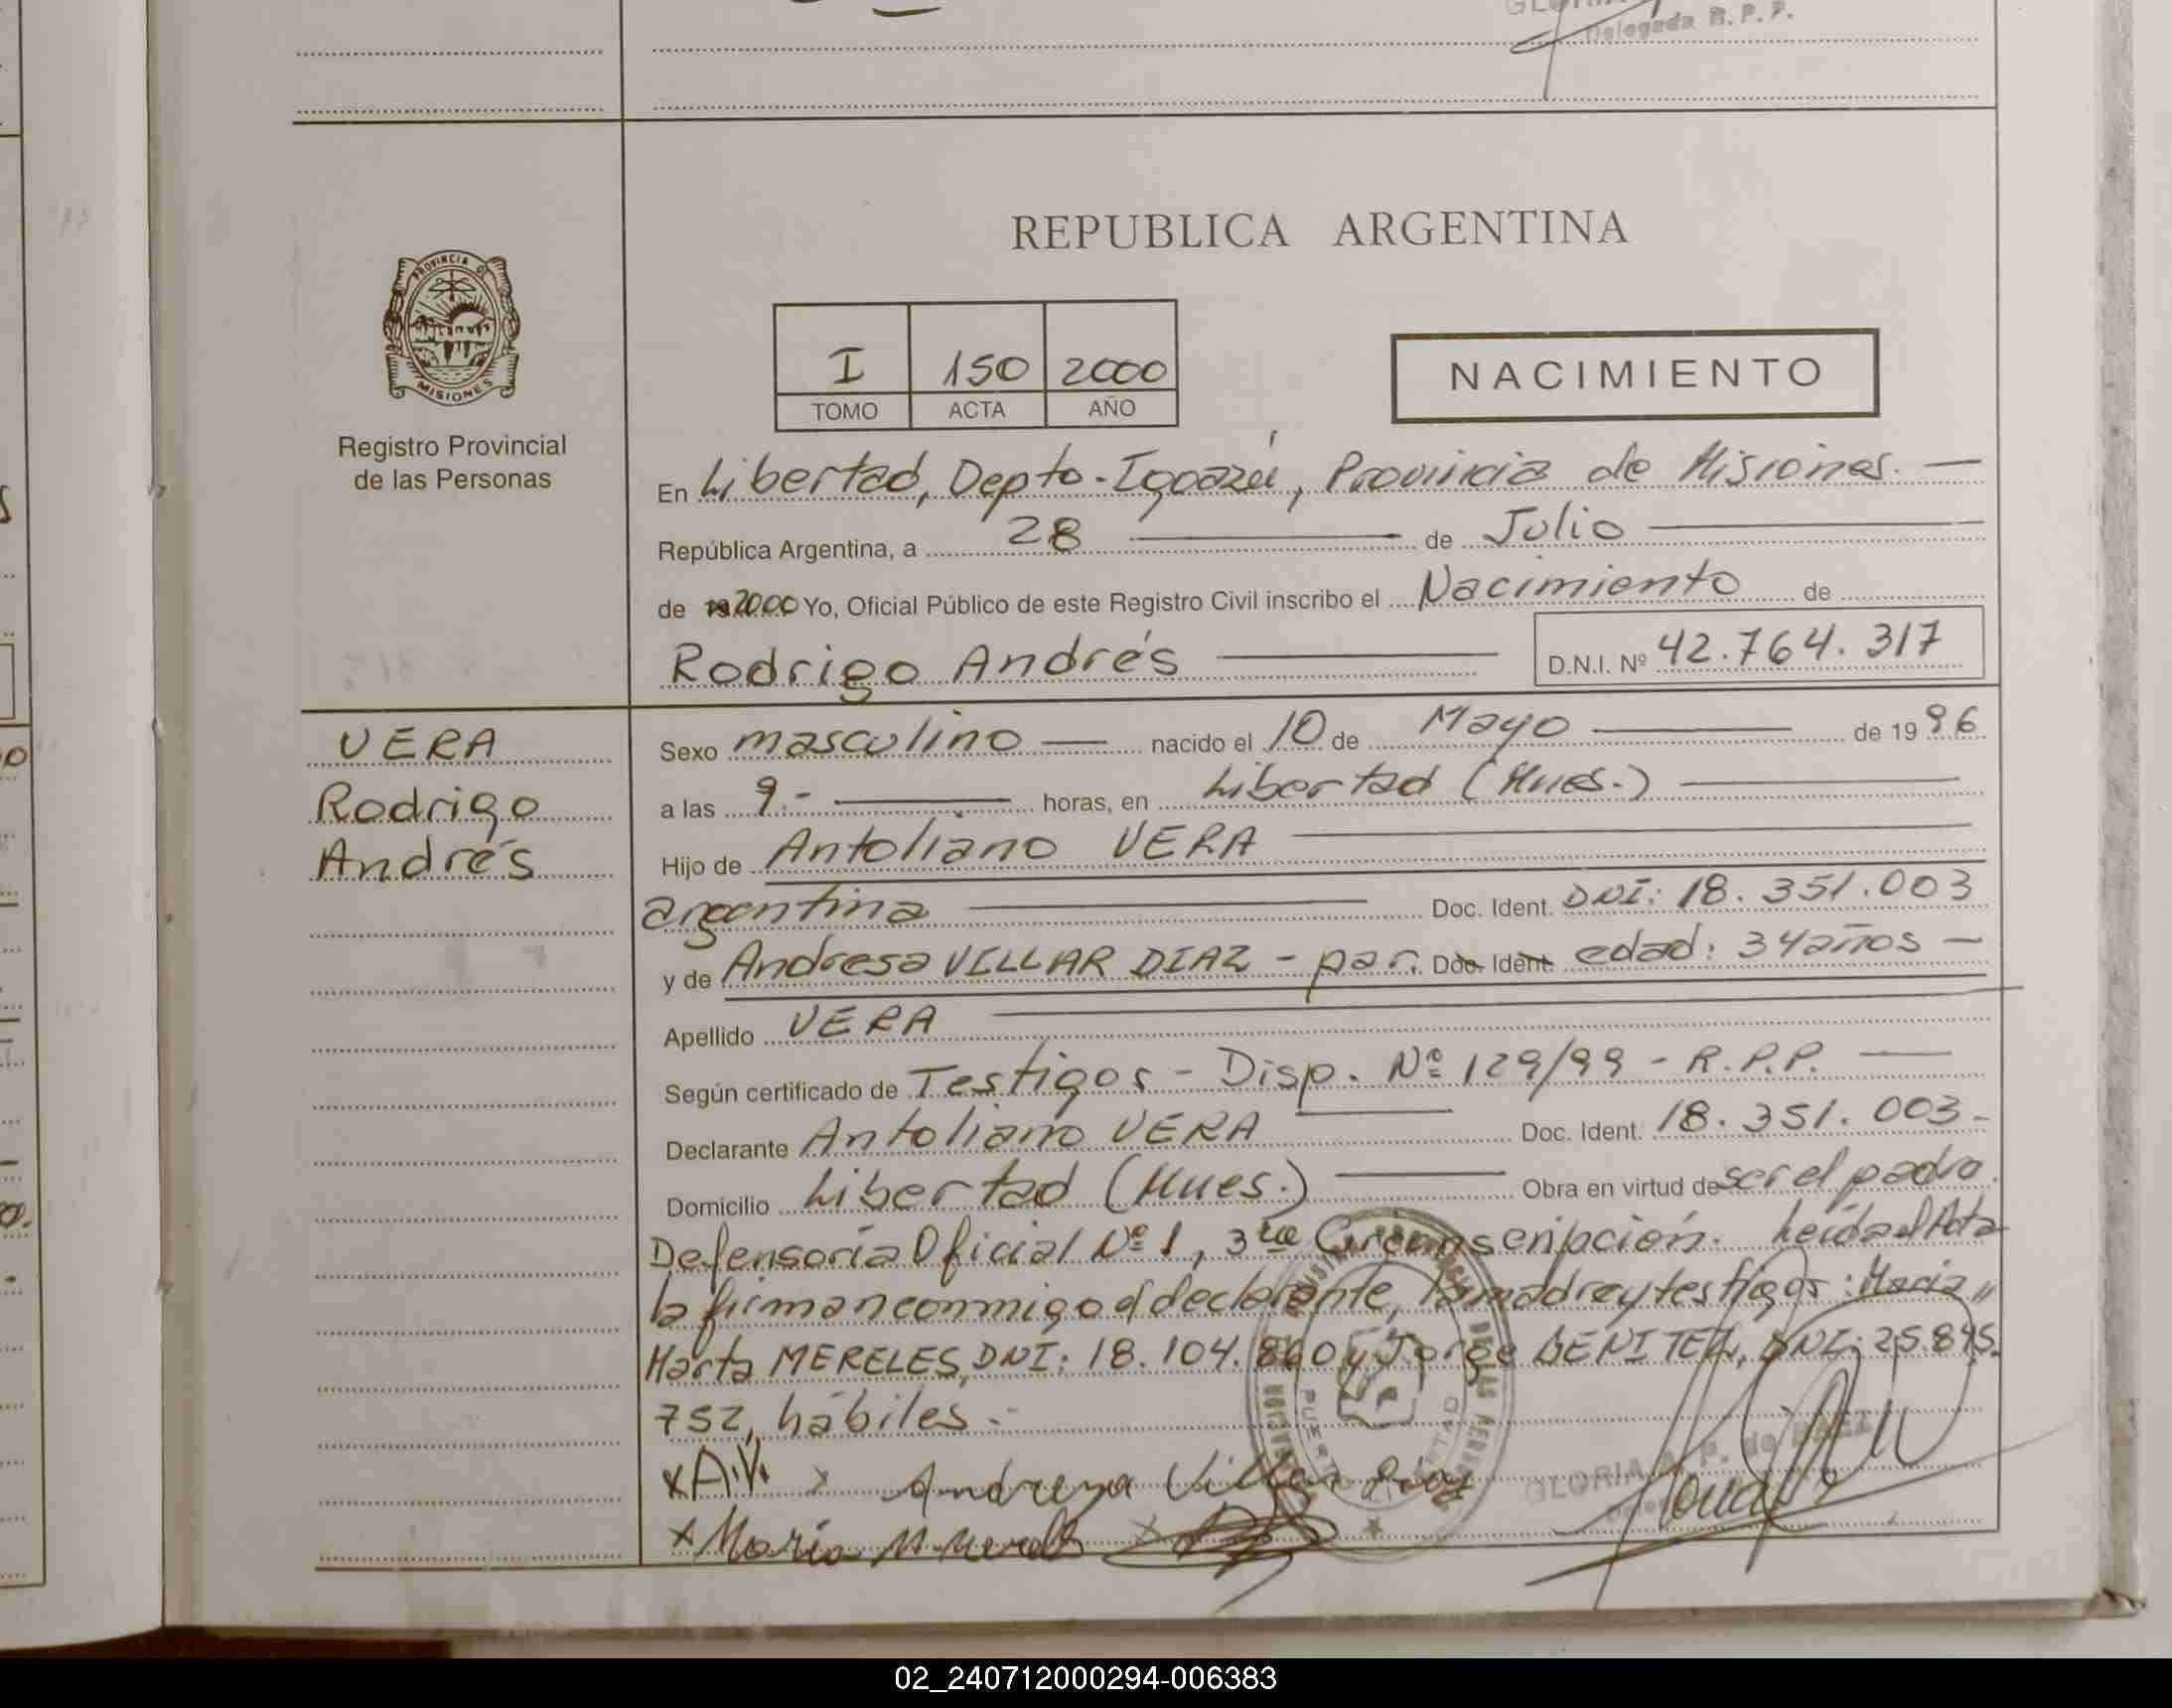 Delegada R.P.P.
REPUBLICA ARGENTINA
PROVINCIA DE
MISIONES
Registro Provincial
de las Personas
I 150 2000
TOMO ACTA AÑO
NACIMIENTO
En Libertad, Depto. Iguazú, Provincia de Misiones. —
República Argentina, a 28 — de Julio —
de 19 2000 Yo, Oficial Público de este Registro Civil inscribo el Nacimiento de
Rodrigo Andrés — D.N.I. Nº 42.764.317
VERA
Rodrigo
Andrés
Sexo masculino — nacido el 10 de Mayo — de 1996
a las 9.- — horas, en Libertad (Mnes.) —
Hijo de Antoliano VERA —
argentina — Doc. Ident. DNI: 18.351.003
y de Andresa VILLAR DIAZ - par. Doc. Ident. edad: 34 años —
Apellido VERA —
Según certificado de Testigos - Disp. Nº 129/99 - R.P.P. —
Declarante Antoliano VERA Doc. Ident. 18.351.003-
Domicilio Libertad (Mnes.) — Obra en virtud de ser el padre.
Defensoría Oficial Nº 1, 3ra Circunscripción. Leída el Acta
la firman conmigo el declarante, la madre y testigos: María
Marta MERELES, DNI: 18.104.860 y Jorge BENITEZ, DNI: 25.895.
752, hábiles.-
x A.V. x Andreza Villar Diaz
GLORIA A. P. de
x María M Mereles x
02_240712000294-006383